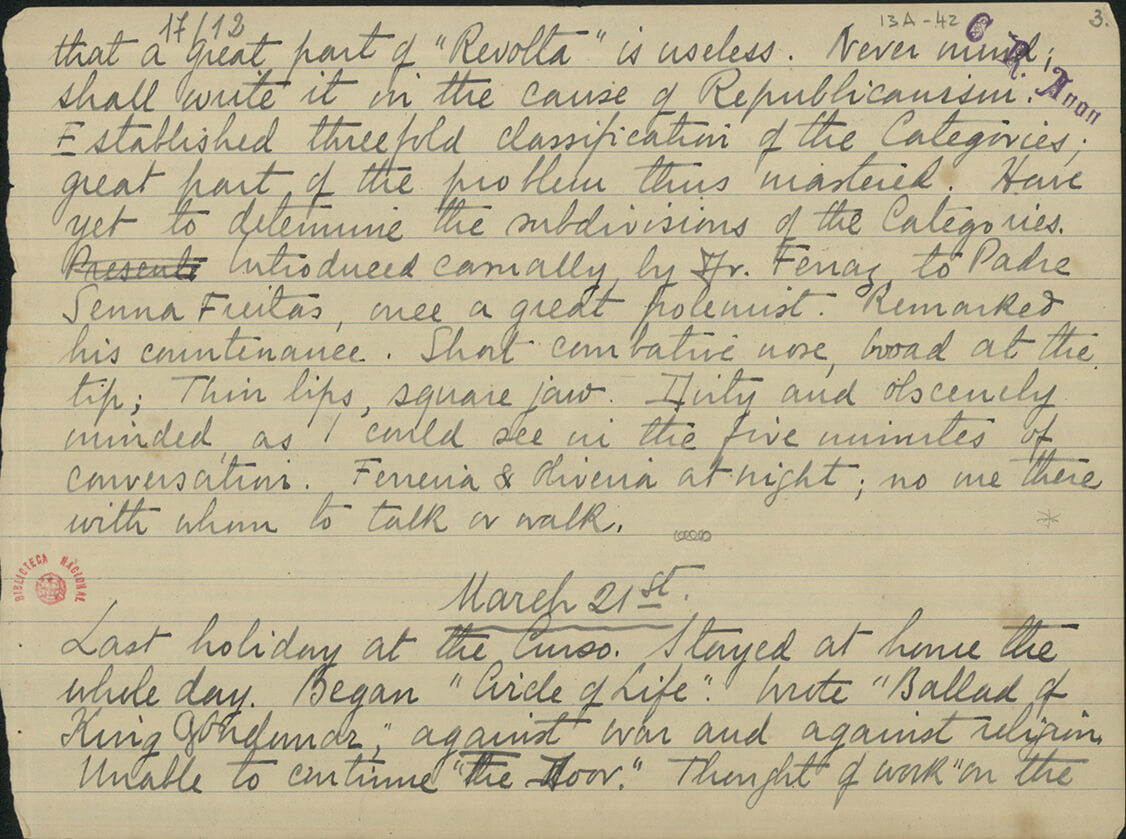 17/12
13A-42
3.
C. R. Anon
that a great part of "Revolta" is useless. Never mind;
shall write it in the cause of Republicanism.
Established threefold classification of the Categories;
great part of the problem thus mastered. Have
yet to determine the subdivisions of the Categories.
Presente Introduced casually by Fr. Ferraz to Padre
Senna Freitas, once a great polemist. Remarked
his countenance. Short combative nose, broad at the
tip; Thin lips, square jaw. Dirty and obscenely
minded, as I could see in the five minutes of
conversation. Ferreira & Oliveira at night; no one there
with whom to talk or walk.
BIBLIOTECA NACIONAL
March 21st.
Last holiday at the Curso. Stayed at home the
whole day. Began "Circle of Life". Wrote "Ballad of
King Gondomar," against war and against religion.
Unable to continue "the Door." Thought of work "on the